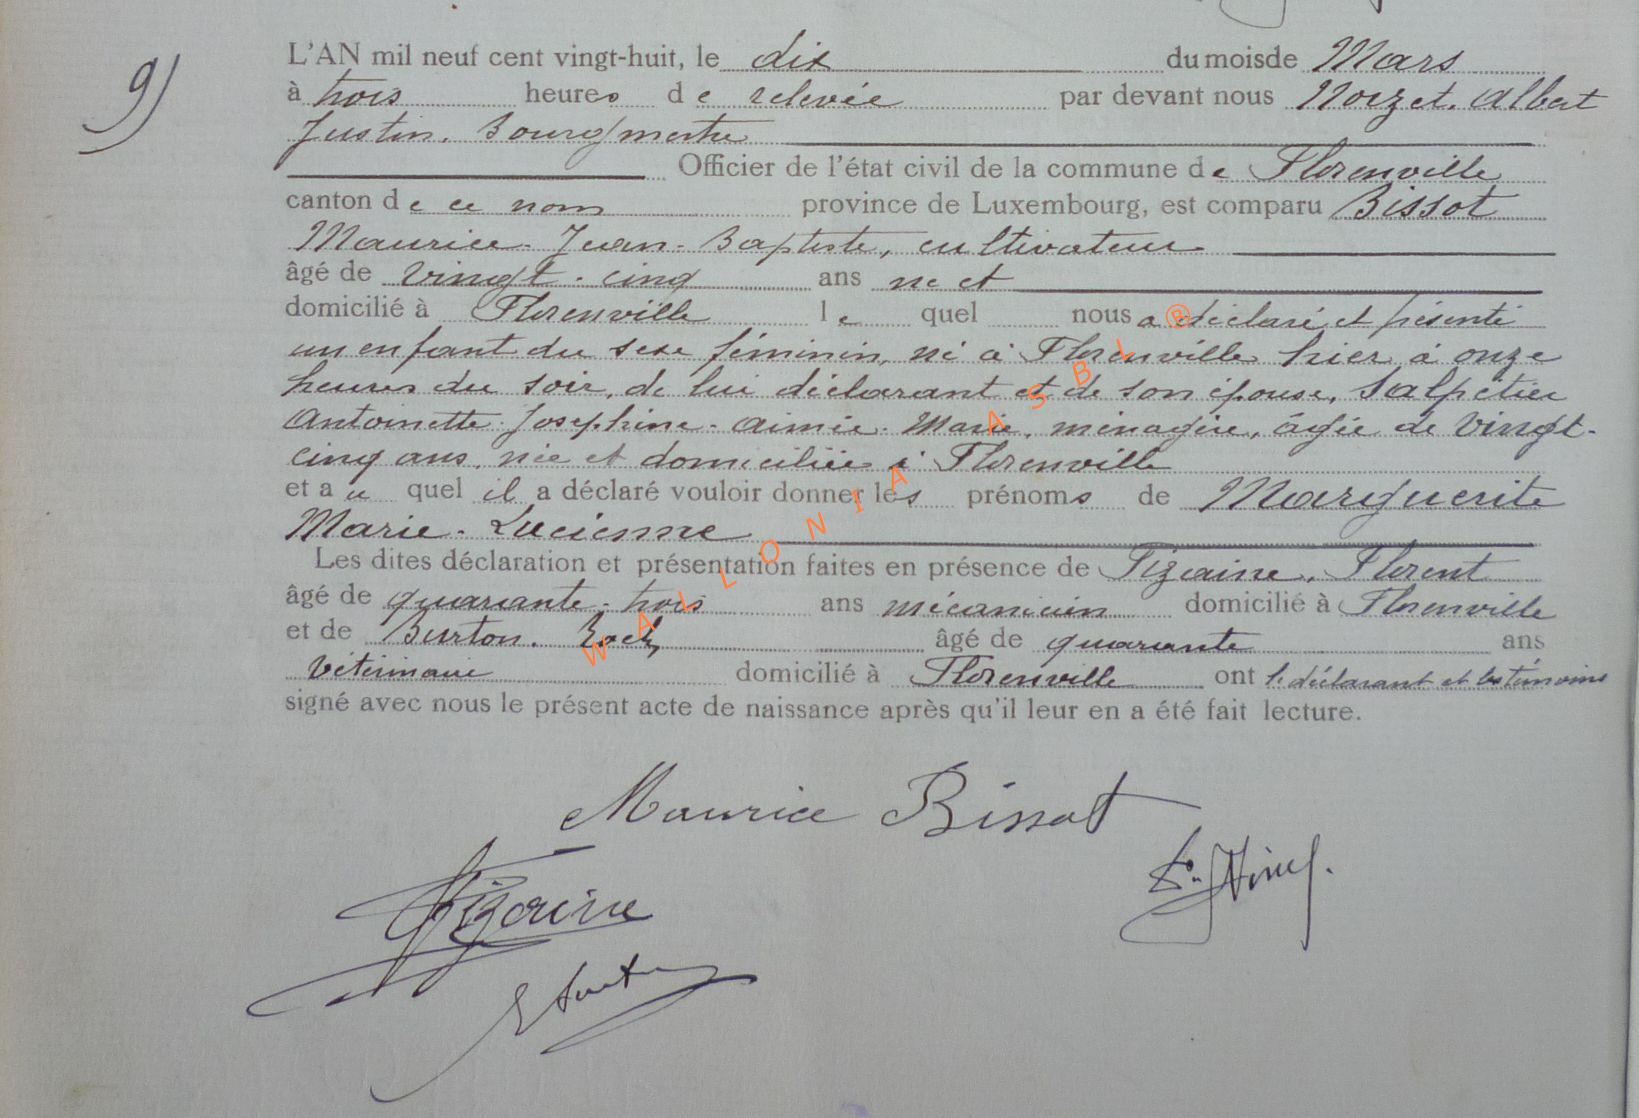 9)
L'AN mil neuf cent vingt-huit, le dix du mois de Mars
à trois heures de relevée par devant nous Noizet, Albert
Justin, Bourgmestre
Officier de l'état civil de la commune de Florenville
canton de ce nom province de Luxembourg, est comparu Bissot
Maurice-Jean-Baptiste, cultivateur
âgé de vingt-cinq ans né et
domicilié à Florenville le quel nous a déclaré et présenté
un enfant du sexe féminin, né à Florenville hier à onze
heures du soir, de lui déclarant et de son épouse, Salpétier
Antoinette-Joséphine-Aimée-Marie, ménagère, âgée de vingt-
cinq ans, née et domiciliée à Florenville
et au quel il a déclaré vouloir donner les prénoms de Marguerite
Marie-Lucienne
Les dites déclaration et présentation faites en présence de Pizaine, Florent
âgé de quarante-trois ans mécanicien domicilié à Florenville
et de Burton, âgé de quarante ans
vétérinaire domicilié à Florenville ont le déclarant et les témoins
signé avec nous le présent acte de naissance après qu'il leur en a été fait lecture.
Maurice Bissot
Pizaine
WALLONIA ASBL ®